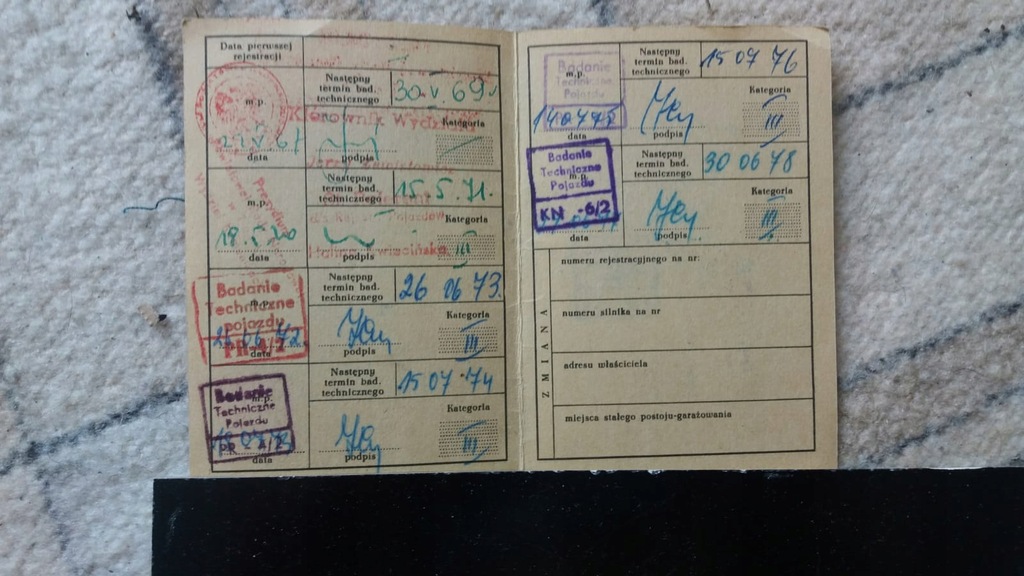 Data pierwszej rejestracji
Następny termin bad. technicznego
30 V 69
m.p.
Kierownik Wydziału
Kategoria
data
podpis
Następny termin bad. technicznego
15.5.71.
m.p.
Kategoria
III
19.5.70
data
podpis
Następny termin bad. technicznego
26 06 73.
Badanie
m.p.
Techniczne
pojazdu
Kategoria
III
data
podpis
Następny termin bad. technicznego
15 07 74
Badanie
m.p.
Techniczne
Pojazdu
Kategoria
III
data
podpis
Następny termin bad. technicznego
15 07 76
Badanie
m.p.
Techniczne
Pojazdu
Kategoria
III
data
podpis
Następny termin bad. technicznego
30 06 78
Badanie
Techniczne
m.p.
Pojazdu
KN -6/2
Kategoria
III
data
podpis
ZMIANA
numeru rejestracyjnego na nr:
numeru silnika na nr
adresu właściciela
miejsca stałego postoju-garażowania